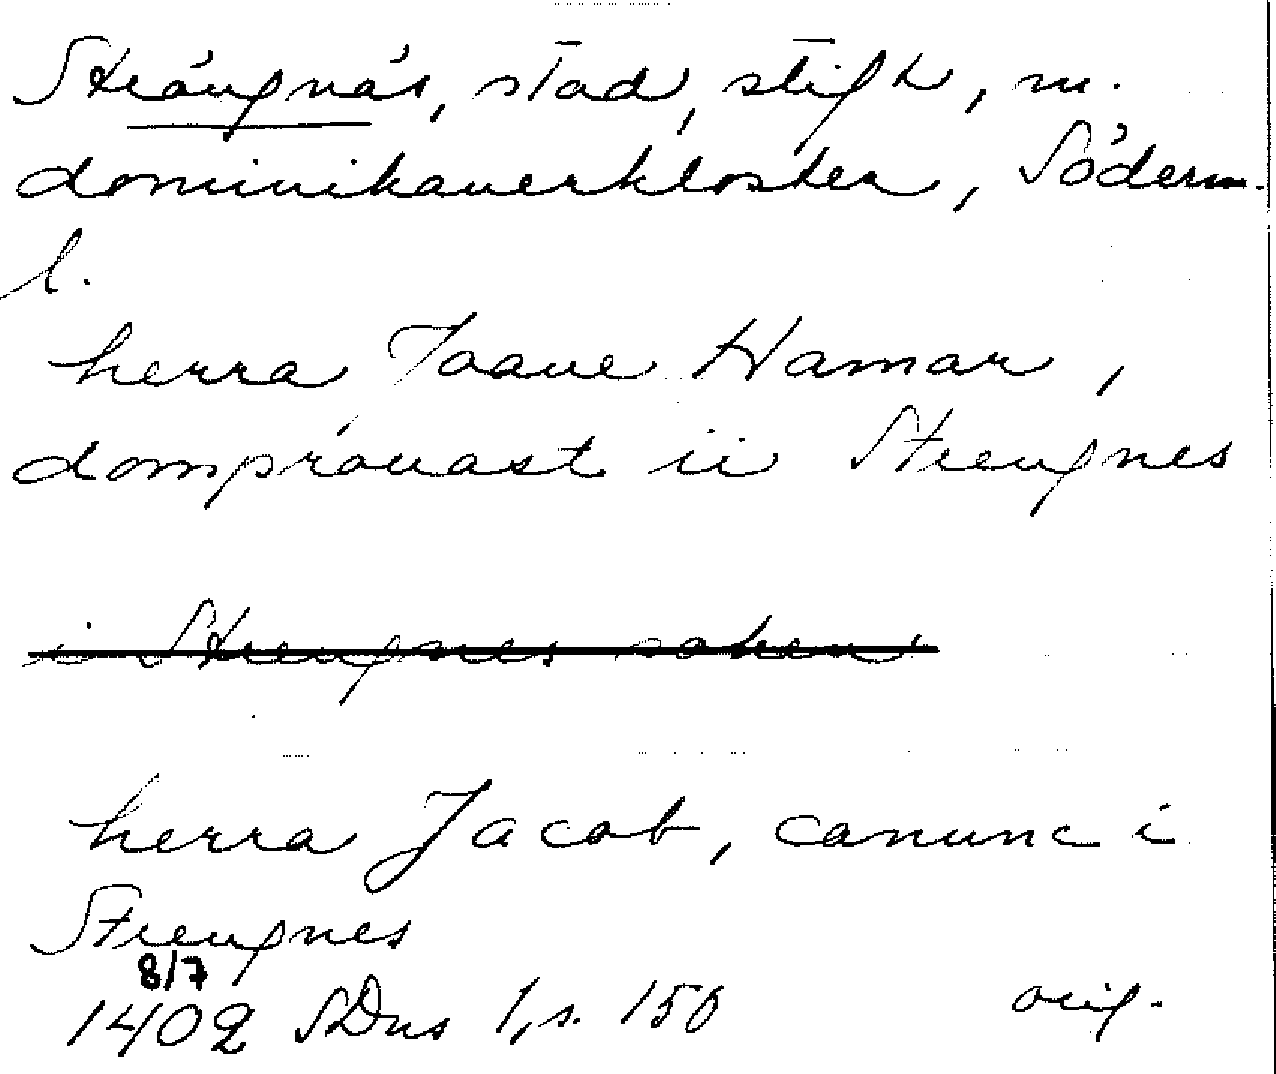 Strängnäs, stad, stift, m.
dominikanerkloster, Söderm.
l.
herra Joane Hamar,
domprouast ii Strengnes
i Strengnes saken
herra Jacob, canunc i
Strengnes
8/7
1402 SDns 1, s. 150 orig.